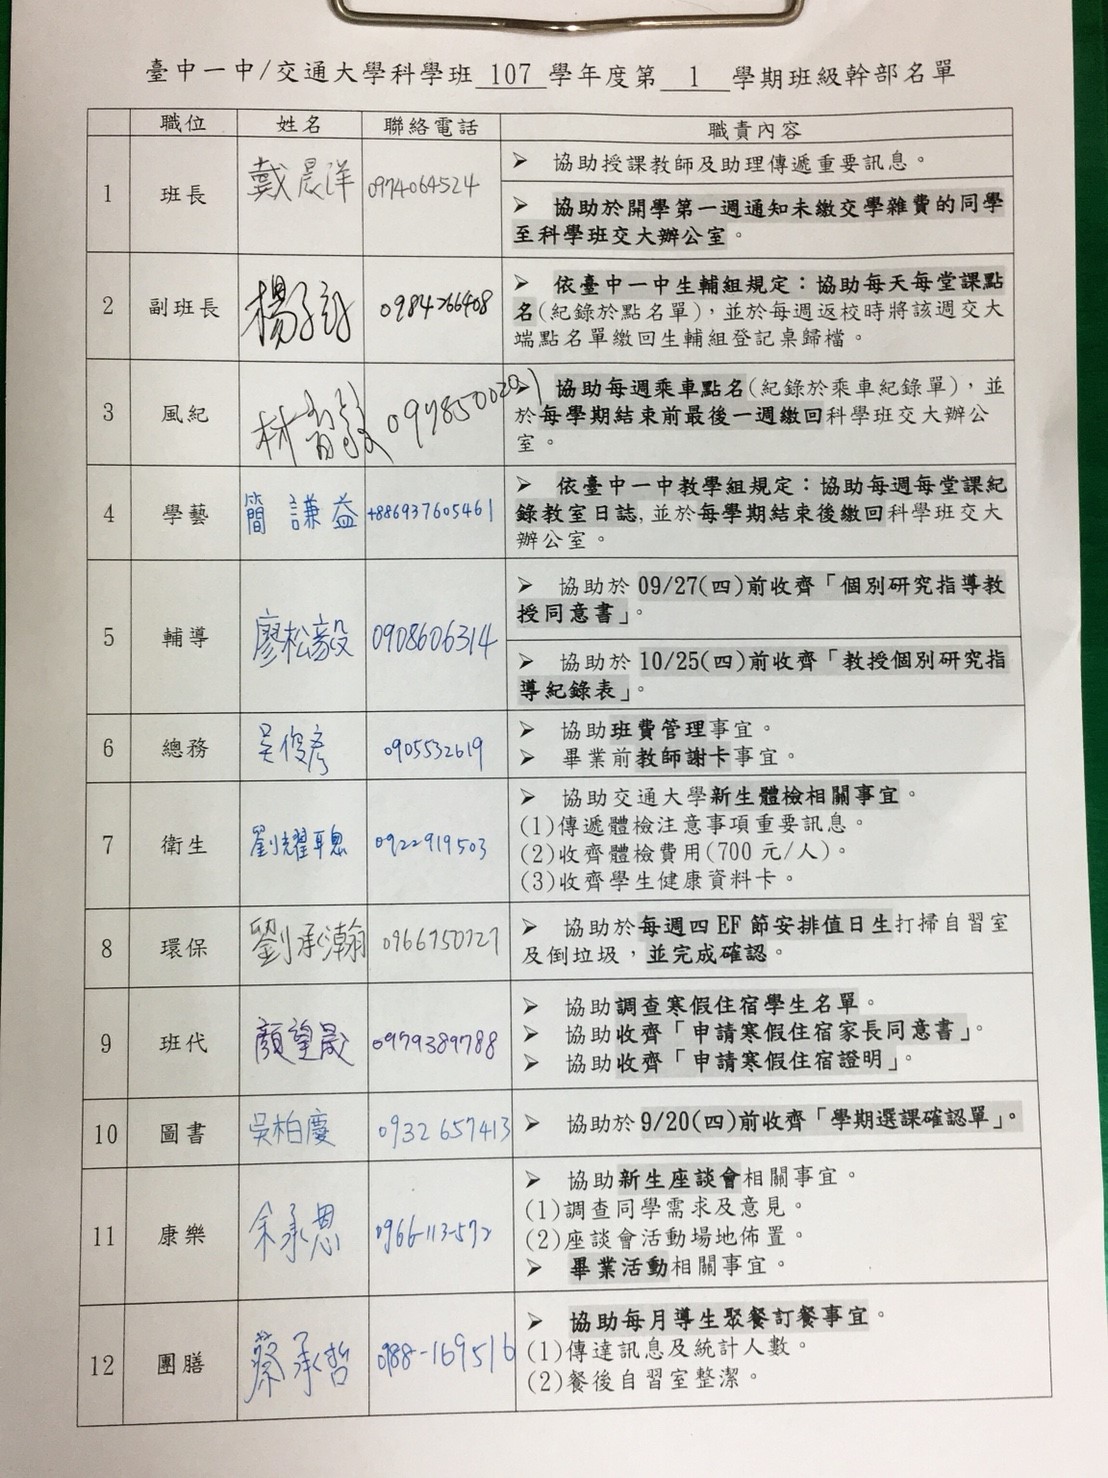 臺中一中/交通大學科學班 107 學年度第 1 學期班級幹部名單
職位 姓名 聯絡電話 職責內容
1 班長 戴晨洋 0974064524
➢ 協助授課教師及助理傳遞重要訊息。
➢ 協助於開學第一週通知未繳交學雜費的同學
至科學班交大辦公室。
2 副班長 楊 0984266408
➢ 依臺中一中生輔組規定：協助每天每堂課點
名(紀錄於點名單)，並於每週返校時將該週交大
端點名單繳回生輔組登記桌歸檔。
3 風紀 林
➢ 協助每週乘車點名(紀錄於乘車紀錄單)，並
於每學期結束前最後一週繳回科學班交大辦公
室。
4 學藝 簡謙益 +886937605461
➢ 依臺中一中教學組規定：協助每週每堂課紀
錄教室日誌,並於每學期結束後繳回科學班交大
辦公室。
5 輔導 廖松毅 0908606314
➢ 協助於 09/27(四)前收齊「個別研究指導教
授同意書」。
➢ 協助於 10/25(四)前收齊「教授個別研究指
導紀錄表」。
6 總務 吳俊彥 0905532619
➢ 協助班費管理事宜。
➢ 畢業前教師謝卡事宜。
7 衛生 劉耀聰 0922919503
➢ 協助交通大學新生體檢相關事宜。
(1)傳遞體檢注意事項重要訊息。
(2)收齊體檢費用(700 元/人)。
(3)收齊學生健康資料卡。
8 環保 劉承瀚 0966750727
➢ 協助於每週四 EF 節安排值日生打掃自習室
及倒垃圾，並完成確認。
9 班代 顏望晟 0979389788
➢ 協助調查寒假住宿學生名單。
➢ 協助收齊「申請寒假住宿家長同意書」。
➢ 協助收齊「申請寒假住宿證明」。
10 圖書 吳柏慶 0932657413
➢ 協助於 9/20(四)前收齊「學期選課確認單」。
11 康樂 余承恩 0966-113-572
➢ 協助新生座談會相關事宜。
(1)調查同學需求及意見。
(2)座談會活動場地佈置。
➢ 畢業活動相關事宜。
12 團膳 蔡承哲 0988-169516
➢ 協助每月導生聚餐訂餐事宜。
(1)傳達訊息及統計人數。
(2)餐後自習室整潔。